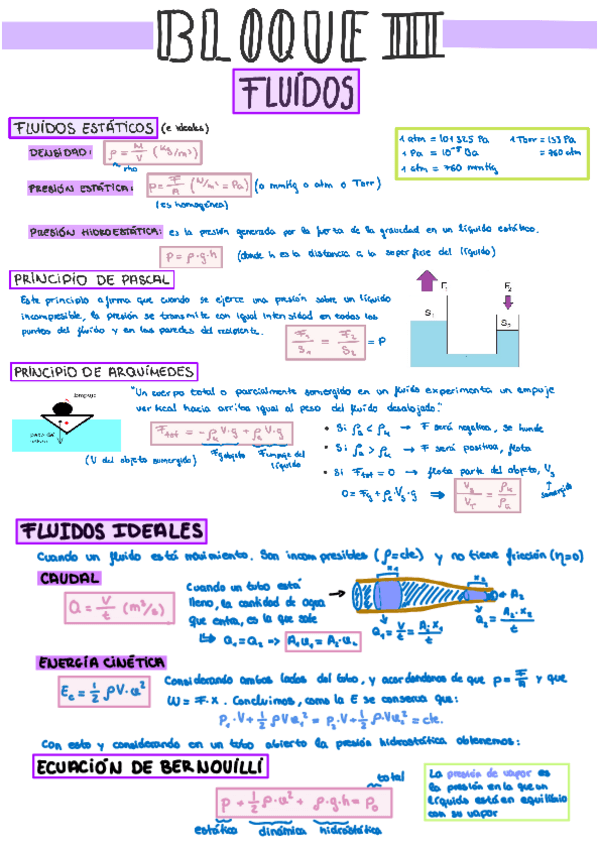 BLOQUE III
FLUÍDOS
FLUÍDOS ESTÁTICOS (e ideales)
DENSIDAD: ρ = M/V (Kg/m³)
rho
1 atm = 101325 Pa 1 Torr = 133 Pa
1 Pa = 10⁻⁵ Ba = 760 atm
1 atm = 760 mmHg
PRESIÓN ESTÁTICA: P = F/A (N/m² = Pa) (o mmHg o atm o Torr)
(es homogénea)
PRESIÓN HIDROESTÁTICA: es la presión generada por la fuerza de la gravedad en un líquido estático.
P = ρ·g·h (donde h es la distancia a la superficie del líquido)
PRINCIPIO DE PASCAL
Este principio afirma que cuando se ejerce una presión sobre un líquido
incompresible, la presión se transmite con igual intensidad en todos los
puntos del fluido y en las paredes del recipiente.
F₁/S₁ = F₂/S₂ = P
F₁ F₂
S₁ S₂
PRINCIPIO DE ARQUÍMEDES
"Un cuerpo total o parcialmente sumergido en un fluido experimenta un empuje
vertical hacia arriba igual al peso del fluido desalojado."
Empuje
F tot = -ρ V·g + ρ V·g
Fg objeto Fempuje del
líquido
(V del objeto sumergido)
• Si → F será negativa, se hunde
• Si → F será positiva, flota
• Si Ftot = 0 → flota parte del objeto, Vs
sumergido
FLUIDOS IDEALES
Cuando un fluido está movimiento. Son incompresibles (ρ=cte) y no tiene fricción (η=0)
CAUDAL
Q = V/t (m³/s)
Cuando un tubo está
lleno, la cantidad de agua
que entra, es la que sale
↳ Q₁ = Q₂ => A₁v₁ = A₂·v₂
x₁ x₂
A₂
Q₁ = V/t = A₁·x₁/t
Q₂ = A₂·x₂/t
ENERGÍA CINÉTICA
Ec = 1/2 ρV·v²
Considerando ambos lados del tubo, y acordándonos de que p = F/A y que
W = F·x. Concluimos, como la E se conserva que:
P₁·V + 1/2 ρVv₁² = P₂·V + 1/2 ρ·Vv₂² = cte.
Con esto y considerando en un tubo abierto la presión hidrostática obtenemos:
ECUACIÓN DE BERNOUILLI
total
P + 1/2 ρ·v² + ρ·g·h = P₀
estática dinámica hidrostática
La presión de vapor es
la presión en la que un
líquido está en equilibrio
con su vapor